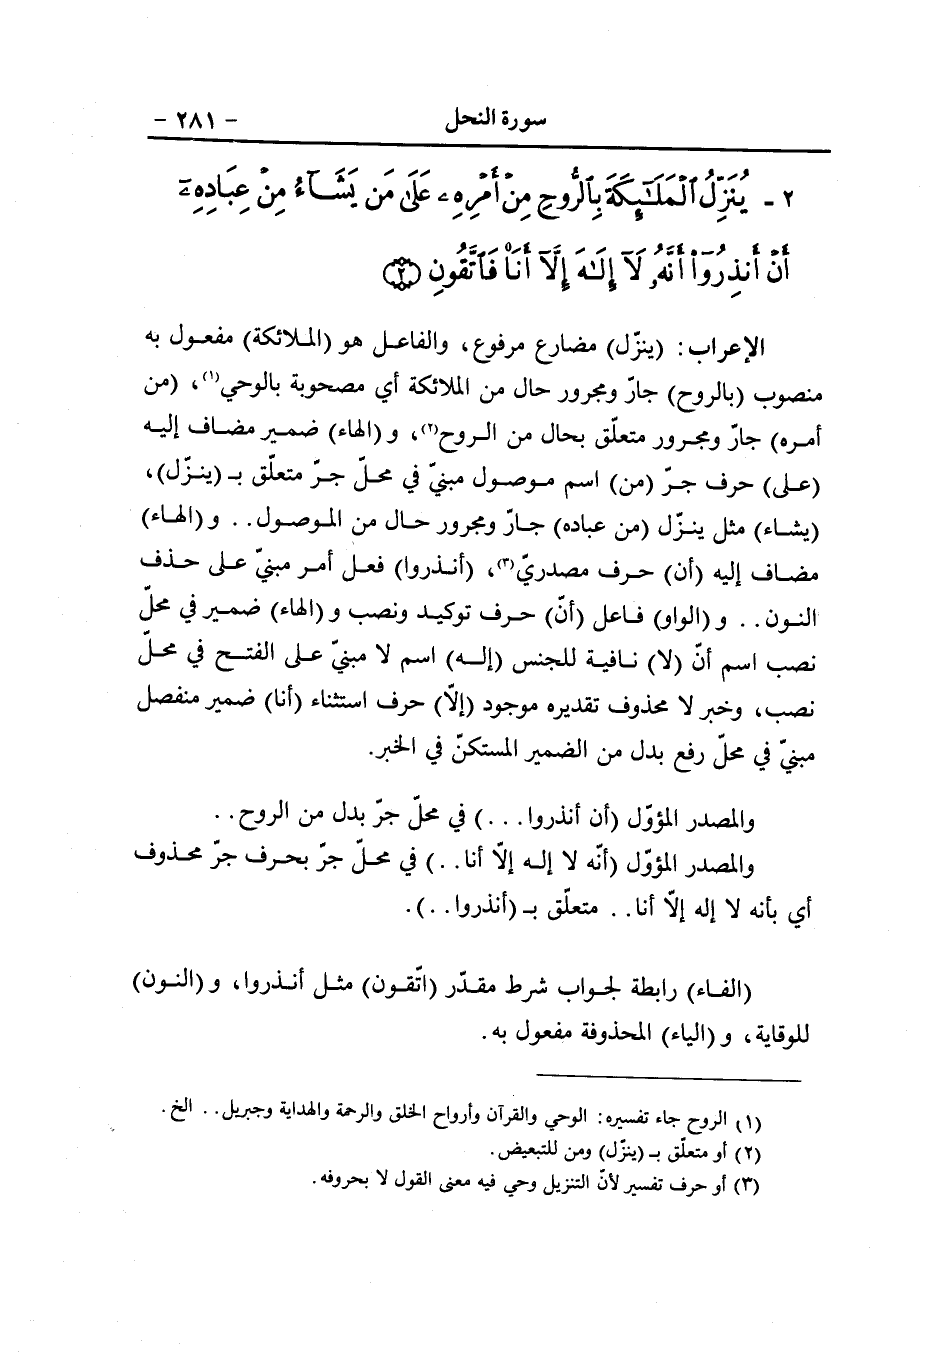 سورة النحل - ٢٨١ -
٢ - يُنَزِّلُ ٱلْمَلَـٰٓئِكَةَ بِٱلرُّوحِ مِنْ أَمْرِهِۦ عَلَىٰ مَن يَشَآءُ مِنْ عِبَادِهِۦٓ
أَنْ أَنذِرُوٓا۟ أَنَّهُۥ لَآ إِلَـٰهَ إِلَّآ أَنَا۠ فَٱتَّقُونِ ﴿٢﴾
الإعراب: (ينزّل) مضارع مرفوع، والفاعل هو (الملائكة) مفعول به
منصوب (بالروح) جارّ ومجرور حال من الملائكة أي مصحوبة بالوحي(١)، (من
أمره) جارّ ومجرور متعلّق بحال من الروح(٢)، و (الهاء) ضمير مضاف إليه
(على) حرف جرّ (من) اسم موصول مبنيّ في محلّ جرّ متعلّق بـ (ينزّل)،
(يشاء) مثل ينزّل (من عباده) جارّ ومجرور حال من الموصول.. و (الهاء)
مضاف إليه (أن) حرف مصدريّ(٣)، (أنذروا) فعل أمر مبنيّ على حذف
النون.. و (الواو) فاعل (أنّ) حرف توكيد ونصب و (الهاء) ضمير في محلّ
نصب اسم أنّ (لا) نافية للجنس (إله) اسم لا مبنيّ على الفتح في محلّ
نصب، وخبر لا محذوف تقديره موجود (إلّا) حرف استثناء (أنا) ضمير منفصل
مبنيّ في محلّ رفع بدل من الضمير المستكنّ في الخبر.
والمصدر المؤوّل (أن أنذروا...) في محلّ جرّ بدل من الروح..
والمصدر المؤوّل (أنّه لا إله إلّا أنا..) في محلّ جرّ بحرف جرّ محذوف
أي بأنه لا إله إلّا أنا.. متعلّق بـ (أنذروا..).
(الفاء) رابطة لجواب شرط مقدّر (اتّقون) مثل أنذروا، و (النون)
للوقاية، و (الياء) المحذوفة مفعول به.
(١) الروح جاء تفسيره: الوحي والقرآن وأرواح الخلق والرحمة والهداية وجبريل.. الخ.
(٢) أو متعلّق بـ (ينزّل) ومن للتبعيض.
(٣) أو حرف تفسير لأنّ التنزيل وحي فيه معنى القول لا بحروفه.